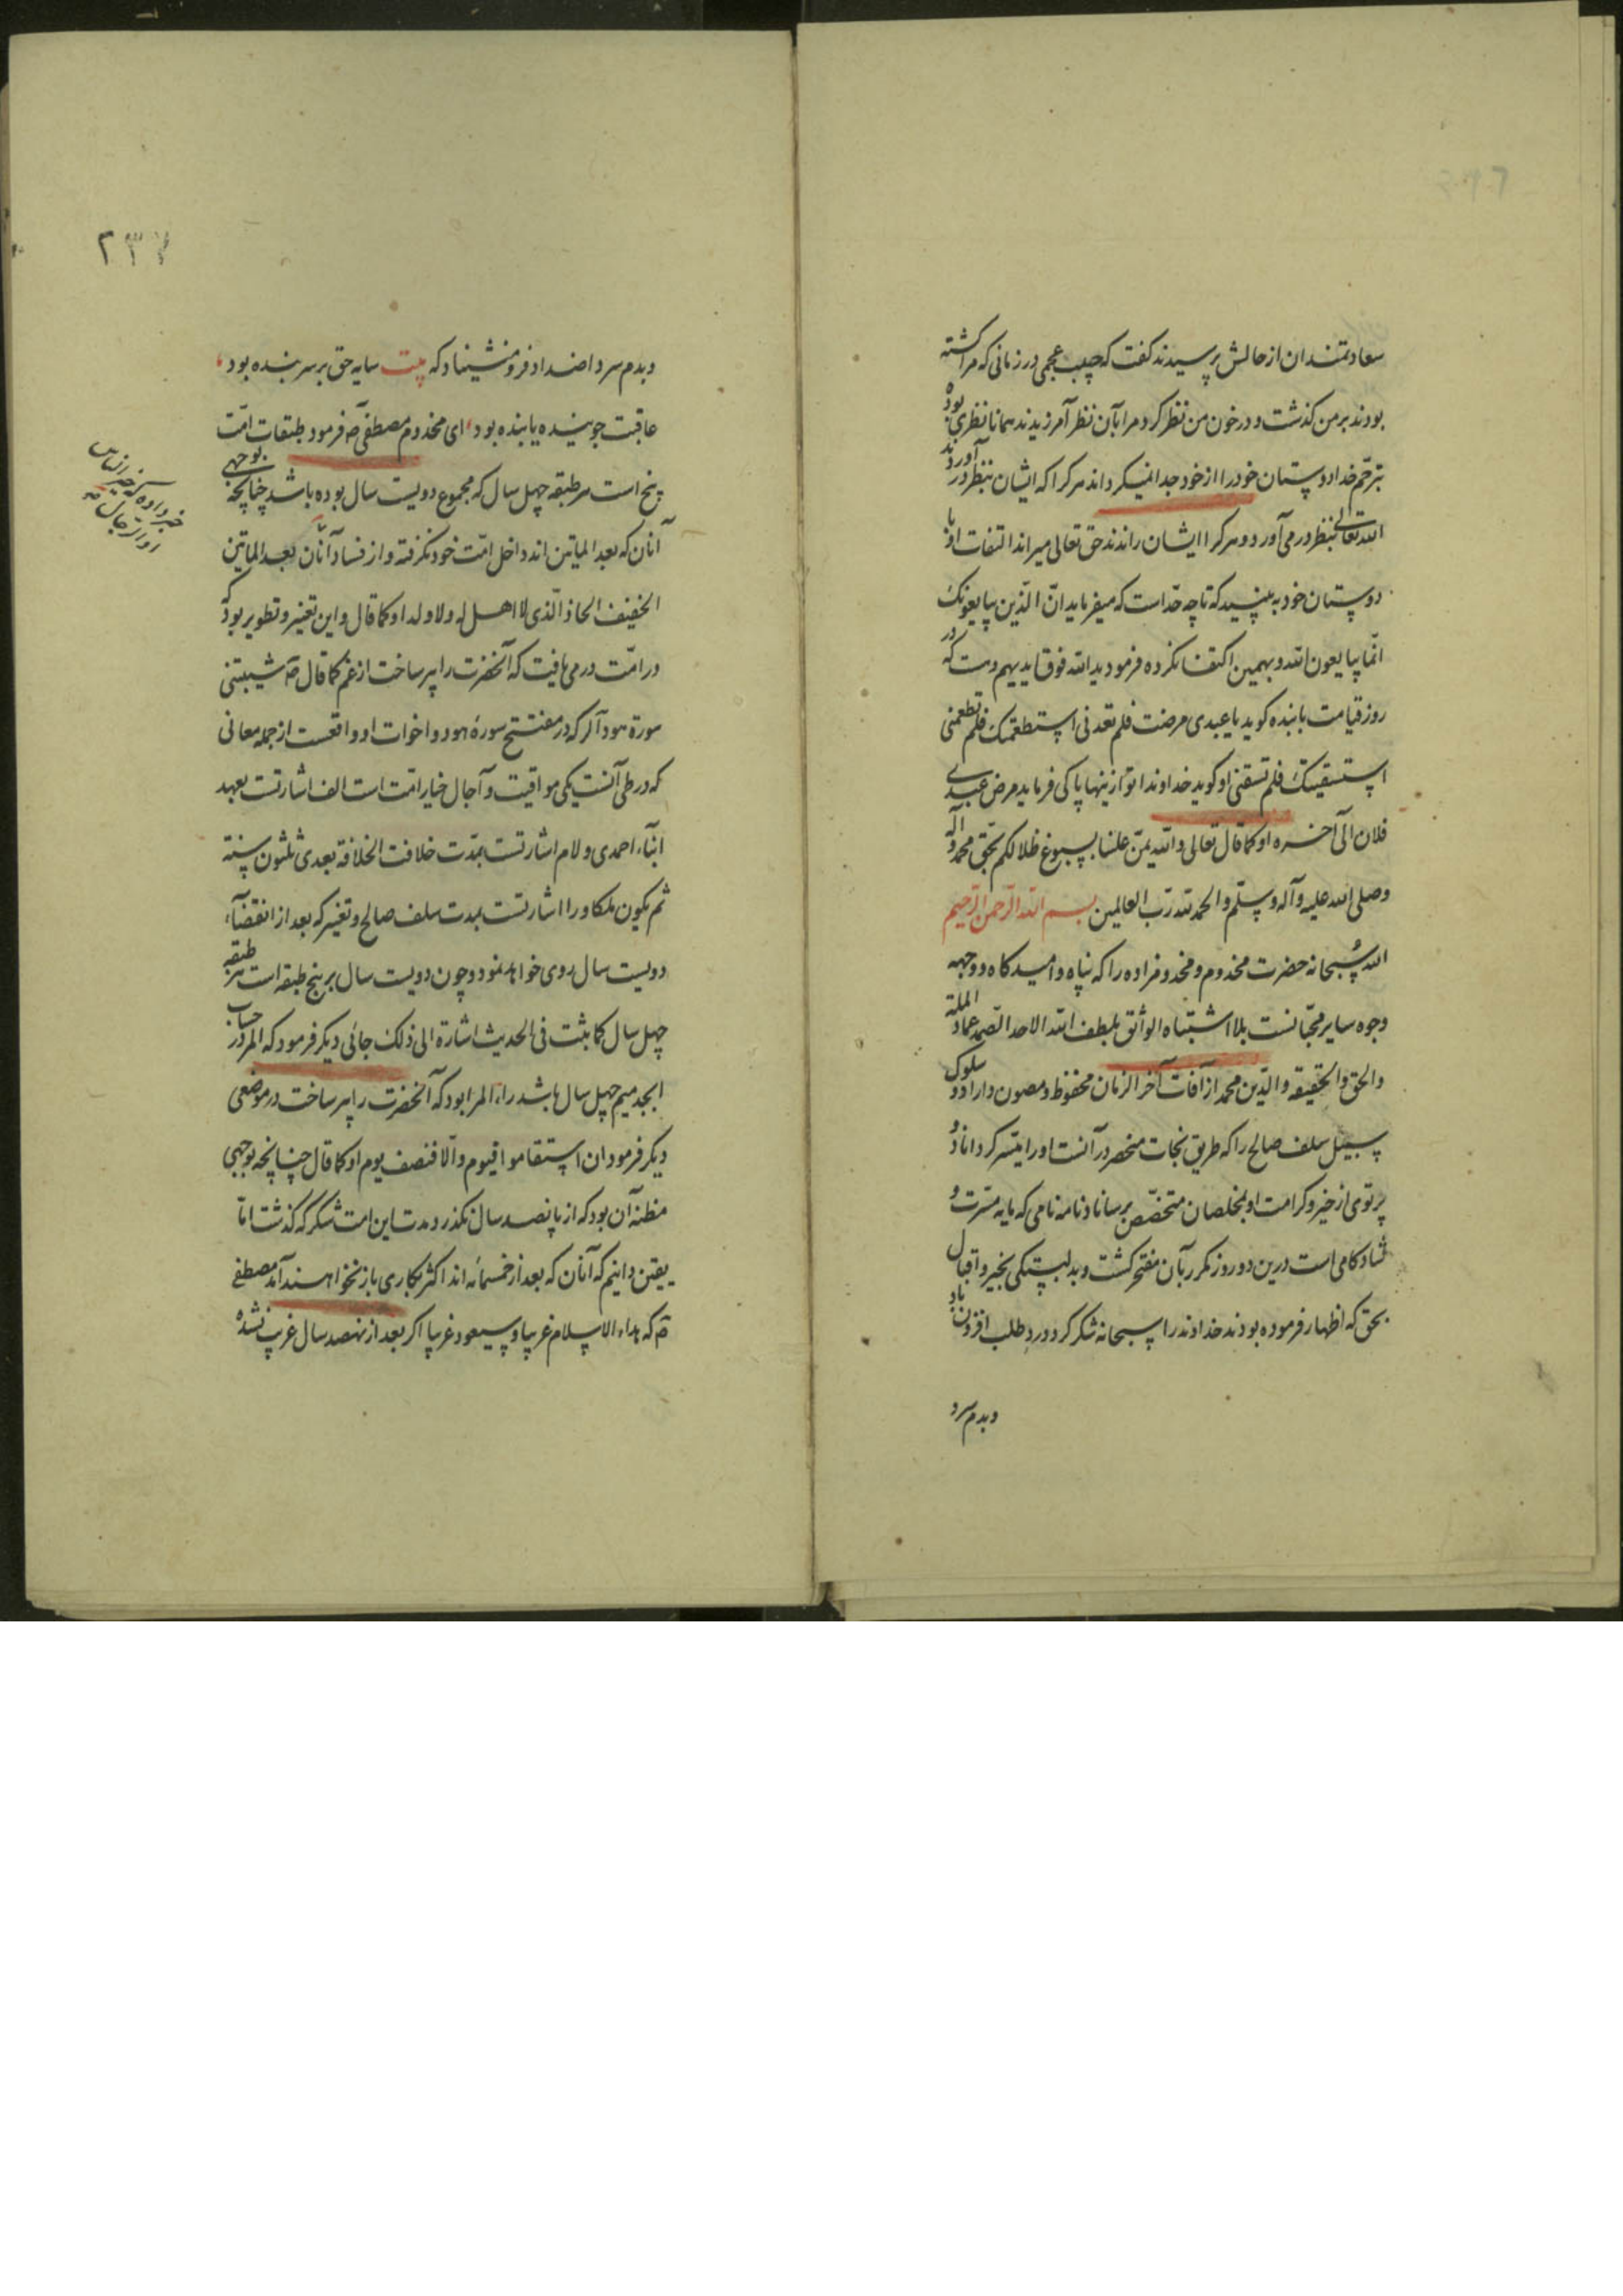 سعادتمندان از حالش پرسیدند کفت که حبیب عجمی در زمانی که مرا کشته
بودند بر من کذشت و در خون من نظر کرد مرا بآن نظر آمرزیدند همانا نظری بوده
بترحم خدا دوستان خود را از خود جدا نمیکرداند هر کرا که ایشان بنظر در آوردند
الله تعالی بنظر در می آورد و هر کرا ایشان راندند حق تعالی میراند التفات او با
دوستان خود به بینید که تا چه حد است که میفرماید ان الذین یبایعونک
انما یبایعون الله و بهمین اکتفا نکرده فرمود ید الله فوق ایدیهم و هست که در
روز قیامت با بنده کوید یا عبدی مرضت فلم تعدنی استطعمتک فلم تطعمنی
استسقیتک فلم تسقنی او کوید خداوندا تو ازینها پاکی فرماید مرض عبدی
فلان الی آخره او کما قال تعالی والله یمن علینا بسبوغ ظلالکم بحق محمد و آله
وصلی الله علیه وآله وسلم والحمد لله رب العالمین بسم الله الرحمن الرحیم
الله سبحانه حضرت مخدوم و مخدومزاده را که پناه و امیدکاه و وجهه
وجوه سایر محبانست بلا اشتباه الواثق بلطف الله الاحد الصمد عماد الملة
والحق والحقیقه والدین محمد از آفات آخر الزمان محفوظ و مصون داراد و سلوک
سبیل سلف صالح را که طریق نجات منحصر در آنست او را میسر کرداناد و
پرتوی از خیر و کرامت او بمخلصان متخصص برساناد نامه نامی که مایه مسرت و
شادکامی است درین دو روز مکرر بآن مفتخر کشت و بدلبستکی بخیر و اقبال
بحق که اظهار فرموده بودند خداوند را سبحانه شکر کرد و درد طلب افزون باد
و بدم سرد
۲۳۷
و بدم سرد اضداد فرو منشیناد که بیت سایه حق بر سر بنده بود
عاقبت جوینده یابنده بود ای مخدوم مصطفی صه فرمود طبقات امت
پنج است هر طبقه چهل سال که مجموع دویست سال بوده باشد چنانچه بوجهی
آنان که بعد الماتین اند داخل امت خود نکرفته و از فساد آنان بعد الماتین
الخفیف الحاذ الذی لا اهل له ولا ولد او کما قال و این تغییر و تطویر بود که
در امت در می یافت که آنحضرت را پیر ساخت از غم کما قال صه شیبتنی
سورة هود آلر که در مفتتح سوره هود و اخوات او واقعست از جمله معانی
که در طی آنست یکی مواقیت و آجال خیار امت است الف اشارتست بعهد
انباء احمدی و لام اشارتست بمدت خلافت الخلافة بعدی ثلثون سنة
ثم یکون ملکا و را اشارتست بمدت سلف صالح و تغییر که بعد از انقضاء
دویست سال روی خواهد نمود و چون دویست سال بر پنج طبقه است هر طبقه
چهل سال کما ثبت فی الحدیث اشارة الی ذلک جائی دیکر فرمود که المر در حساب
ابجد میم چهل سال باشد راء المر ابود که آنحضرت را پیر ساخت در موضعی
دیکر فرمود ان استقاموا فیوم والا فنصف یوم او کما قال چنانچه بوجهی
مظنه آن بود که از پانصد سال نکذرد مدت این امت شکر که کذشت اما
یقین دانیم که آنان که بعد از خمسمائه اند اکثر بکاری باز نخواهند آمد مصطفی
صه که بداء الاسلام غریبا وسیعود غریبا اکر بعد از نهصد سال غریب نشده
خبر داده که خیر الناس